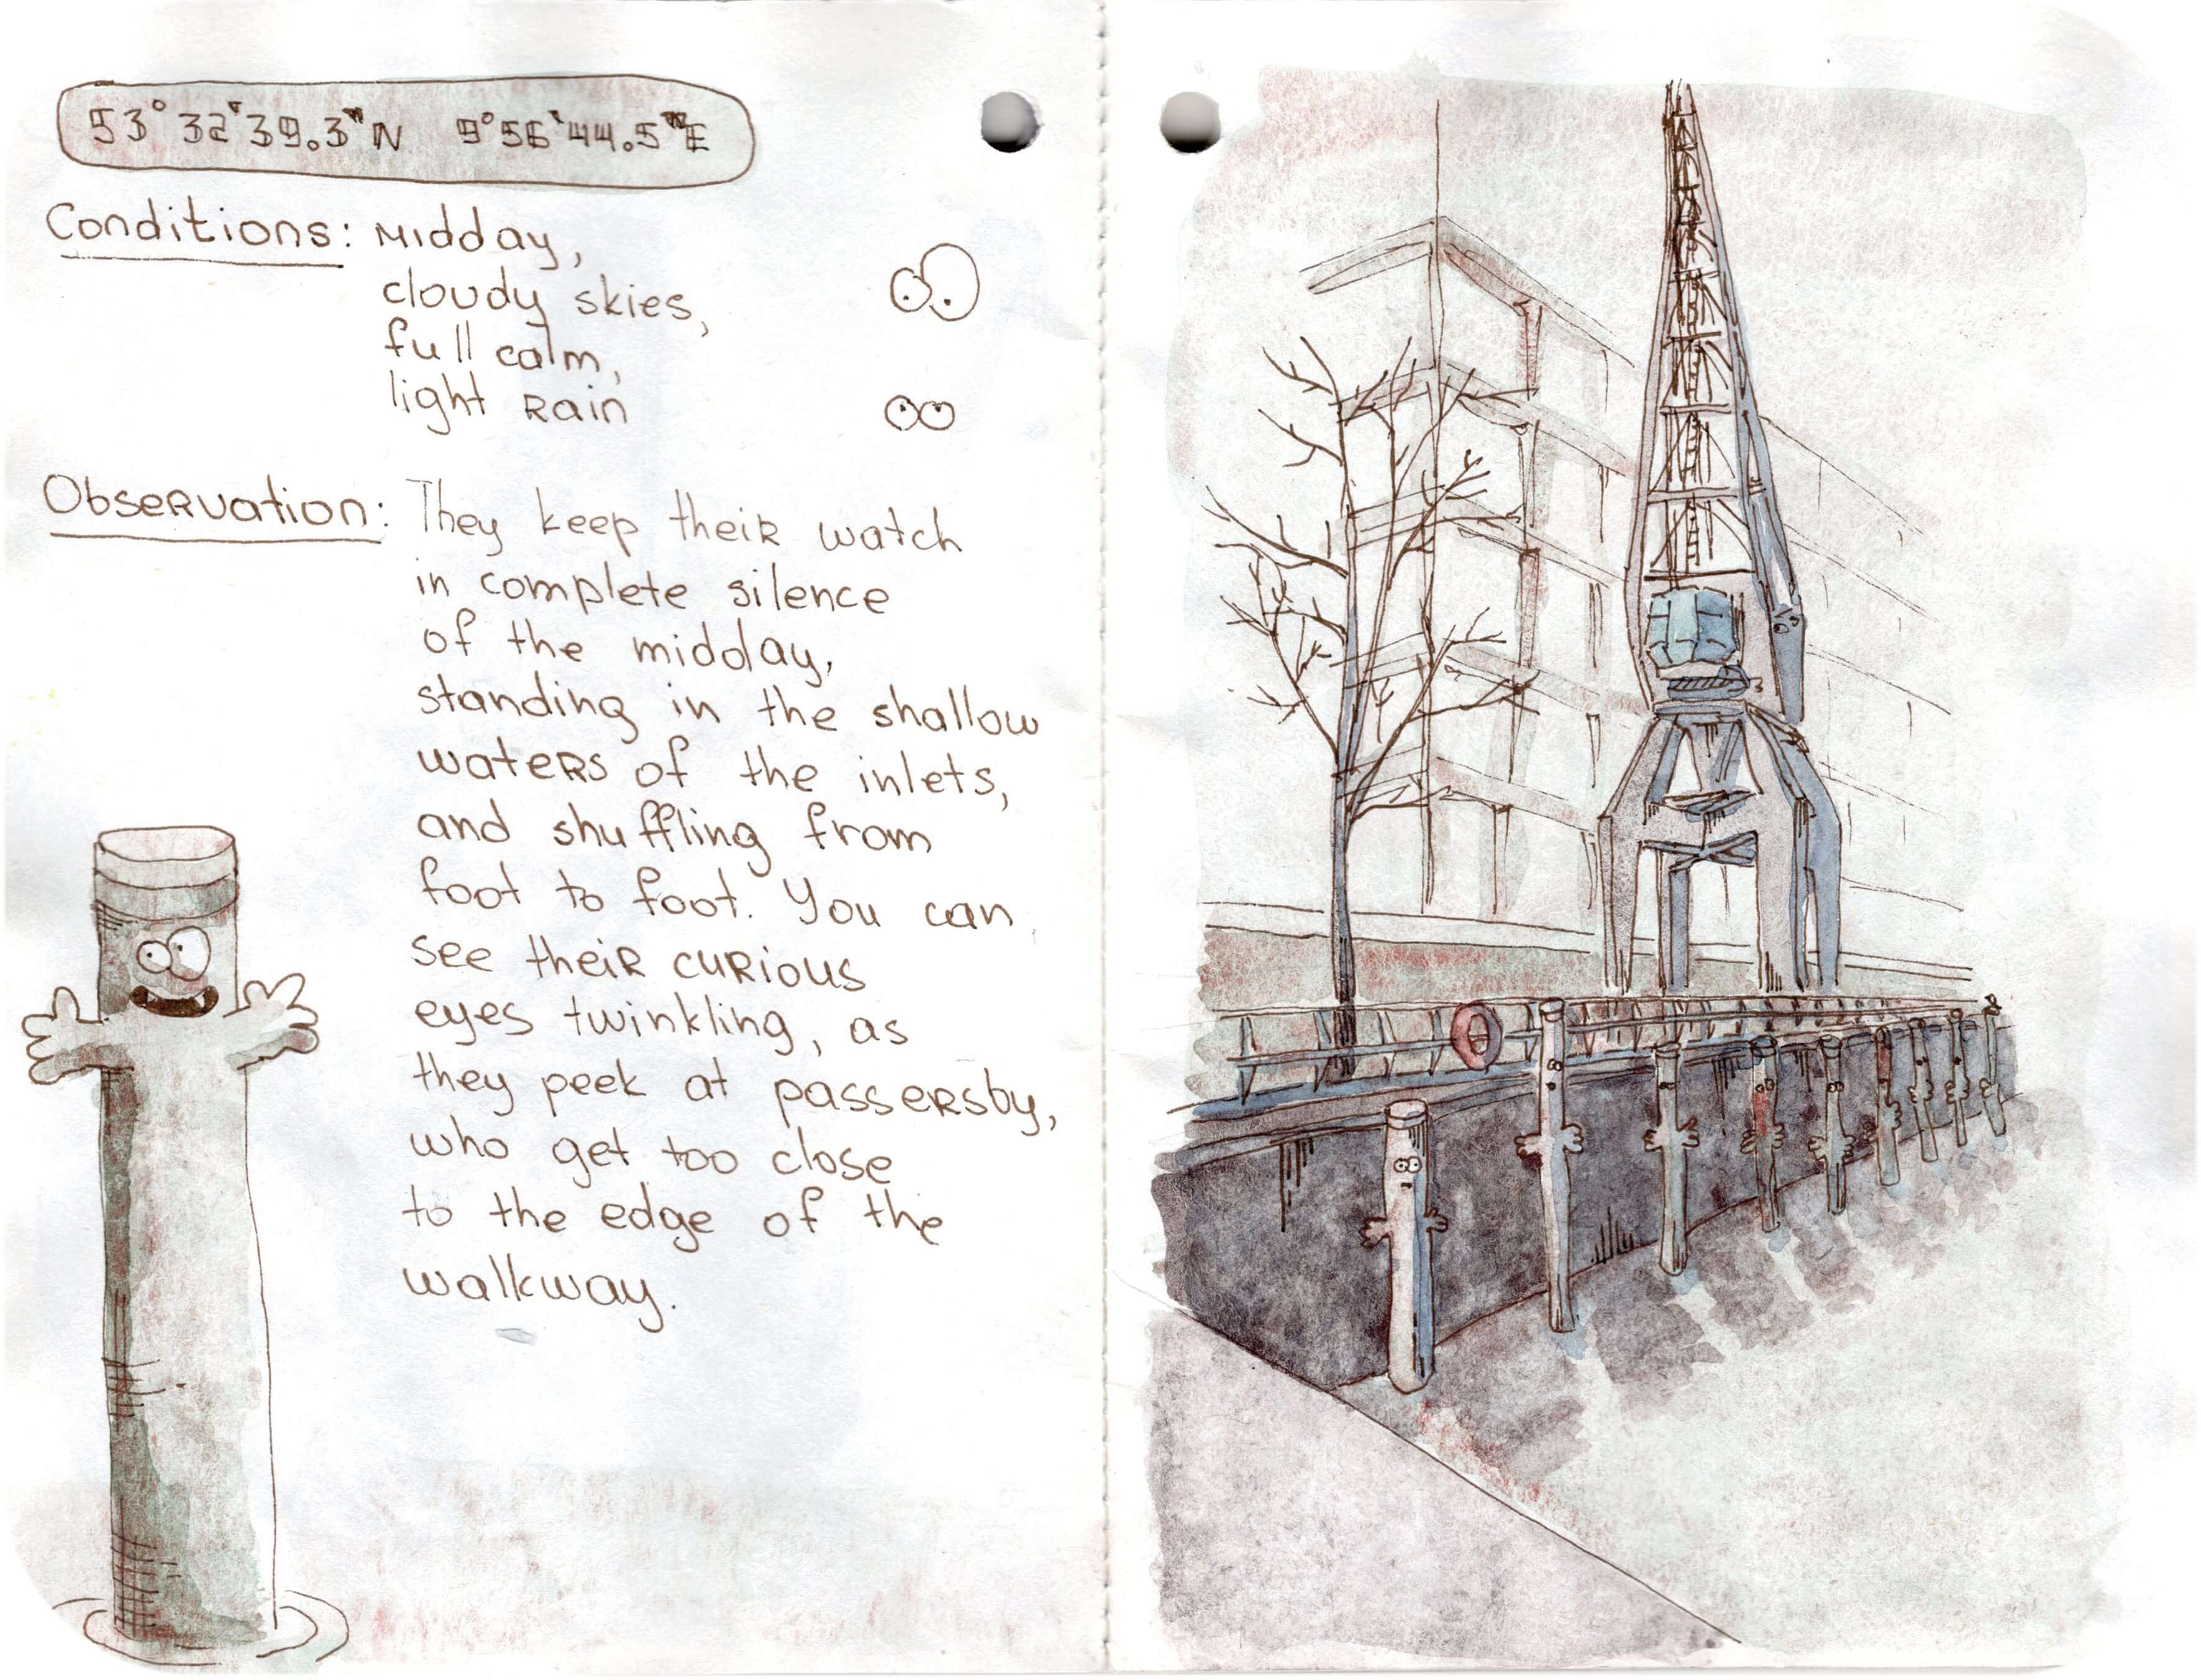 53°32'39.3"N 9°56'44.5"E
Conditions: Midday,
cloudy skies,
full calm,
light Rain
Observation: They keep their watch
in complete silence
of the midday,
standing in the shallow
waters of the inlets,
and shuffling from
foot to foot. You can
see their curious
eyes twinkling, as
they peek at passersby,
who get too close
to the edge of the
walkway.